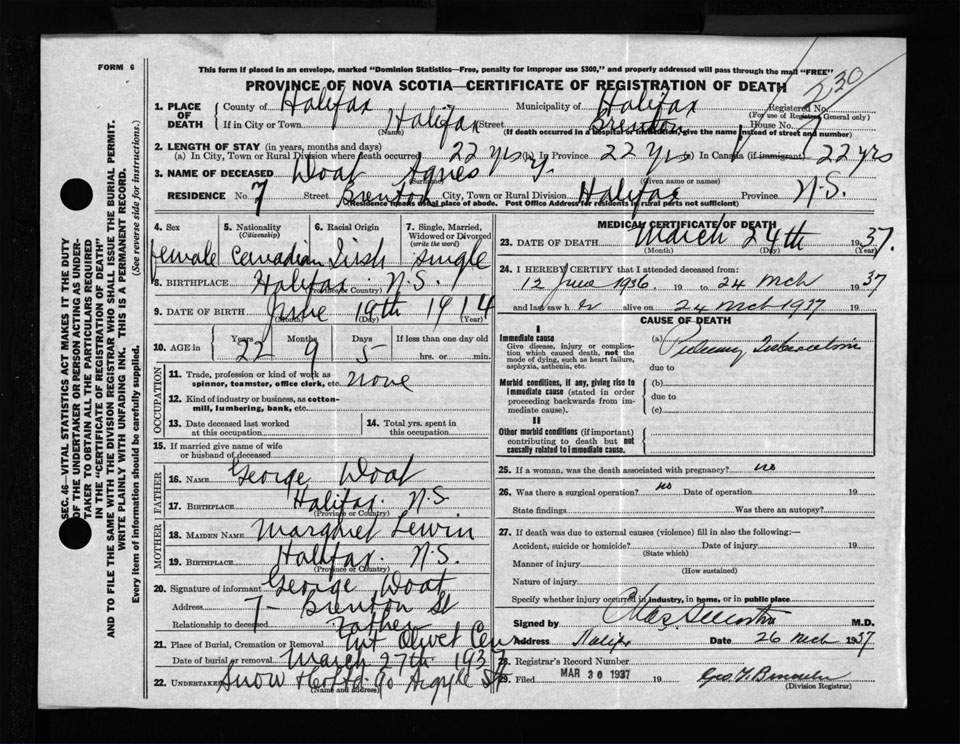 FORM 6
This form if placed in an envelope, marked "Dominion Statistics—Free, penalty for improper use $300," and properly addressed will pass through the mail "FREE"
PROVINCE OF NOVA SCOTIA—CERTIFICATE OF REGISTRATION OF DEATH
230
1. PLACE OF DEATH County of Halifax Municipality of Halifax Registered No.
(For use of Registrar General only)
If in City or Town Halifax Street Brenton House No. 7
(Name) (If death occurred in a hospital or institution, give the name instead of street and number)
2. LENGTH OF STAY (in years, months and days)
(a) In City, Town or Rural Division where death occurred 22 yrs (b) In Province 22 yrs (c) In Canada (if immigrant) 22 yrs
3. NAME OF DECEASED Woat Agnes Y.
(Surname) (Given name or names)
RESIDENCE No. 7 Street Brenton City, Town or Rural Division Halifax Province N.S.
(Residence means usual place of abode. Post Office Address for residents in rural parts not sufficient)
4. Sex 5. Nationality (Citizenship) 6. Racial Origin 7. Single, Married, Widowed or Divorced (write the word)
female Canadian Irish single
8. BIRTHPLACE Halifax N.S.
(Province or Country)
9. DATE OF BIRTH June 19th 1914
(Month) (Day) (Year)
10. AGE in Years Months Days If less than one day old
22 9 5 hrs. or min.
OCCUPATION
11. Trade, profession or kind of work as spinner, teamster, office clerk, etc. none
12. Kind of industry or business, as cotton-mill, lumbering, bank, etc.
13. Date deceased last worked at this occupation
14. Total yrs. spent in this occupation
15. If married give name of wife or husband of deceased
FATHER
16. NAME George Woat
17. BIRTHPLACE Halifax N.S.
(Province or Country)
MOTHER
18. MAIDEN NAME Margaret Lewin
19. BIRTHPLACE Halifax N.S.
(Province or Country)
20. Signature of informant George Woat
Address 7 - Brenton St
Relationship to deceased Father
21. Place of Burial, Cremation or Removal Mt Olivet Cem
Date of burial or removal March 27th 1937
22. UNDERTAKER Snow & Co Ltd 90 Argyle St
(Name and address)
MEDICAL CERTIFICATE OF DEATH
23. DATE OF DEATH March 24th 1937.
(Month) (Day) (Year)
24. I HEREBY CERTIFY that I attended deceased from:
12 June 1936 19 to 24 Mch 1937
and last saw her alive on 24 Mch 1937
CAUSE OF DEATH
I
Immediate cause
Give disease, injury or complication which caused death, not the mode of dying, such as heart failure, asphyxia, asthenia, etc.
(a) Pulmonary Tuberculosis
due to
Morbid conditions, if any, giving rise to immediate cause (stated in order proceeding backwards from immediate cause).
(b)
due to
(c)
II
Other morbid conditions (if important) contributing to death but not causally related to immediate cause.
25. If a woman, was the death associated with pregnancy? no
26. Was there a surgical operation? no Date of operation 19
State findings Was there an autopsy?
27. If death was due to external causes (violence) fill in also the following:—
Accident, suicide or homicide? Date of injury 19
(State which)
Manner of injury
(How sustained)
Nature of injury
Specify whether injury occurred in industry, in home, or in public place
Signed by M.D.
Address Halifax Date 26 Mch 1937
28. Registrar's Record Number
29. Filed MAR 30 1937 19
(Division Registrar)
SEC. 46—VITAL STATISTICS ACT MAKES IT THE DUTY
OF THE UNDERTAKER OR PERSON ACTING AS UNDER-
TAKER TO OBTAIN ALL THE PARTICULARS REQUIRED
IN THE "CERTIFICATE OF REGISTRATION OF DEATH"
AND TO FILE THE SAME WITH THE DIVISION REGISTRAR WHO SHALL ISSUE THE BURIAL PERMIT.
WRITE PLAINLY WITH UNFADING INK. THIS IS A PERMANENT RECORD.
Every item of information should be carefully supplied. (See reverse side for instructions.)